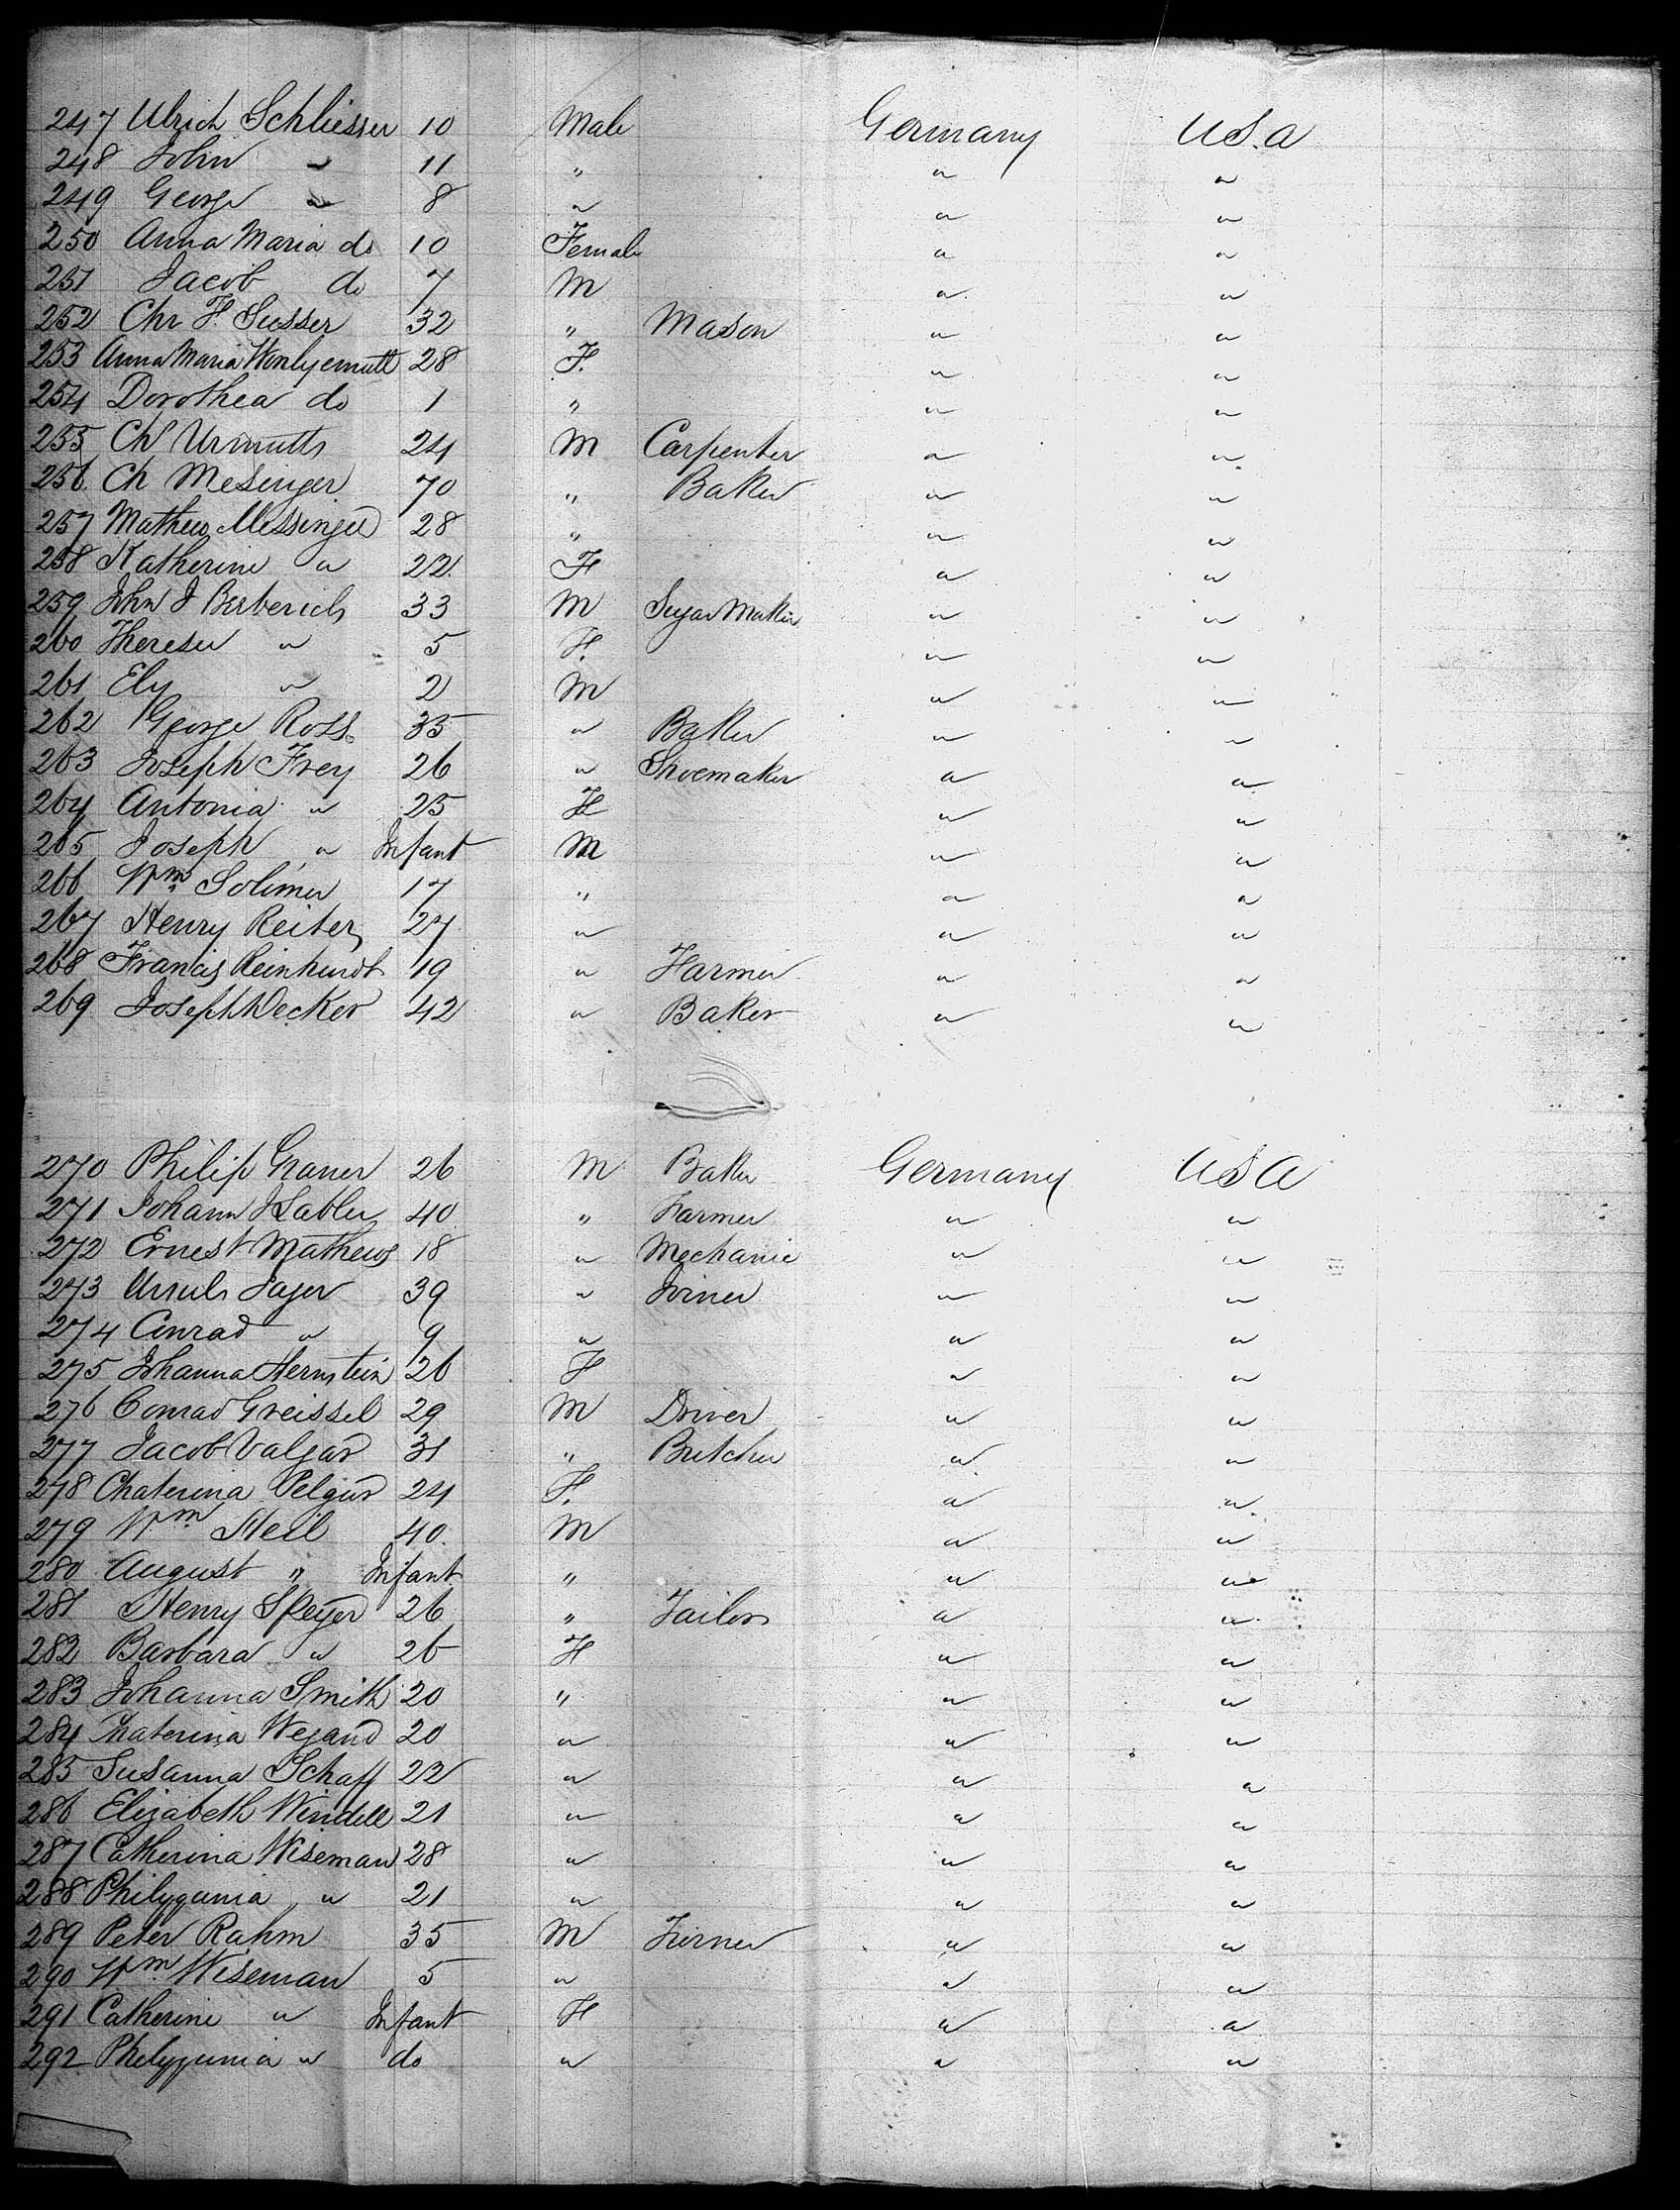 247 Ulrich Schliesser 10 Male Germany U.S.a
248 John " 11 " " "
249 George " 8 " " "
250 Anna Maria do 10 Female " "
251 Jacob do 7 M " "
252 Chr F. Susser 32 " Mason " "
253 Anna Maria 28 F. " "
254 Dorothea do 1 " " "
255 Ch Urmutts 24 M Carpenter " "
256 Ch Mesinger 70 " Baker " "
257 Mathew Messinger 28 " " "
258 Katherine " 22 F " "
259 John J Berberich 33 M Sugar Maker " "
260 Theresa " 5 F. " "
261 Ely " 2 M " "
262 George Ross 35 " Baker " "
263 Joseph Frey 26 " Shoemaker " "
264 Antonia " 25 F " "
265 Joseph " Infant M " "
266 Wm Solimer 17 " " "
267 Henry Reiter 27 " " "
268 Francis Reinhardt 19 " Farmer " "
269 Joseph Decker 42 " Baker " "
270 Philip Graner 26 M Baker Germany U S A
271 Johann 40 " Farmer " "
272 Ernest Mathews 18 " Mechanic " "
273 Ursula Jager 39 " Joiner " "
274 Conrad " 9 " " "
275 Johanna Hernstein 26 F " "
276 Conrad Greissel 29 M Driver " "
277 Jacob Valgar 31 " Butcher " "
278 Chaterina Pelgur 24 F. " "
279 Wm Heil 40 M " "
280 August " Infant " " "
281 Henry Speyer 26 " Tailor " "
282 Barbara " 26 F " "
283 Johanna Smith 20 " " "
284 Chaterina Wegand 20 " " "
285 Susanna Schaff 22 " " "
286 Elizabeth Windell 21 " " "
287 Catherina Wiseman 28 " " "
288 Philygunia " 21 " " "
289 Peter Rahm 35 M Turner " "
290 Wm Wiseman 5 " " "
291 Catherine " Infant F " "
292 Philygunia " do " " "